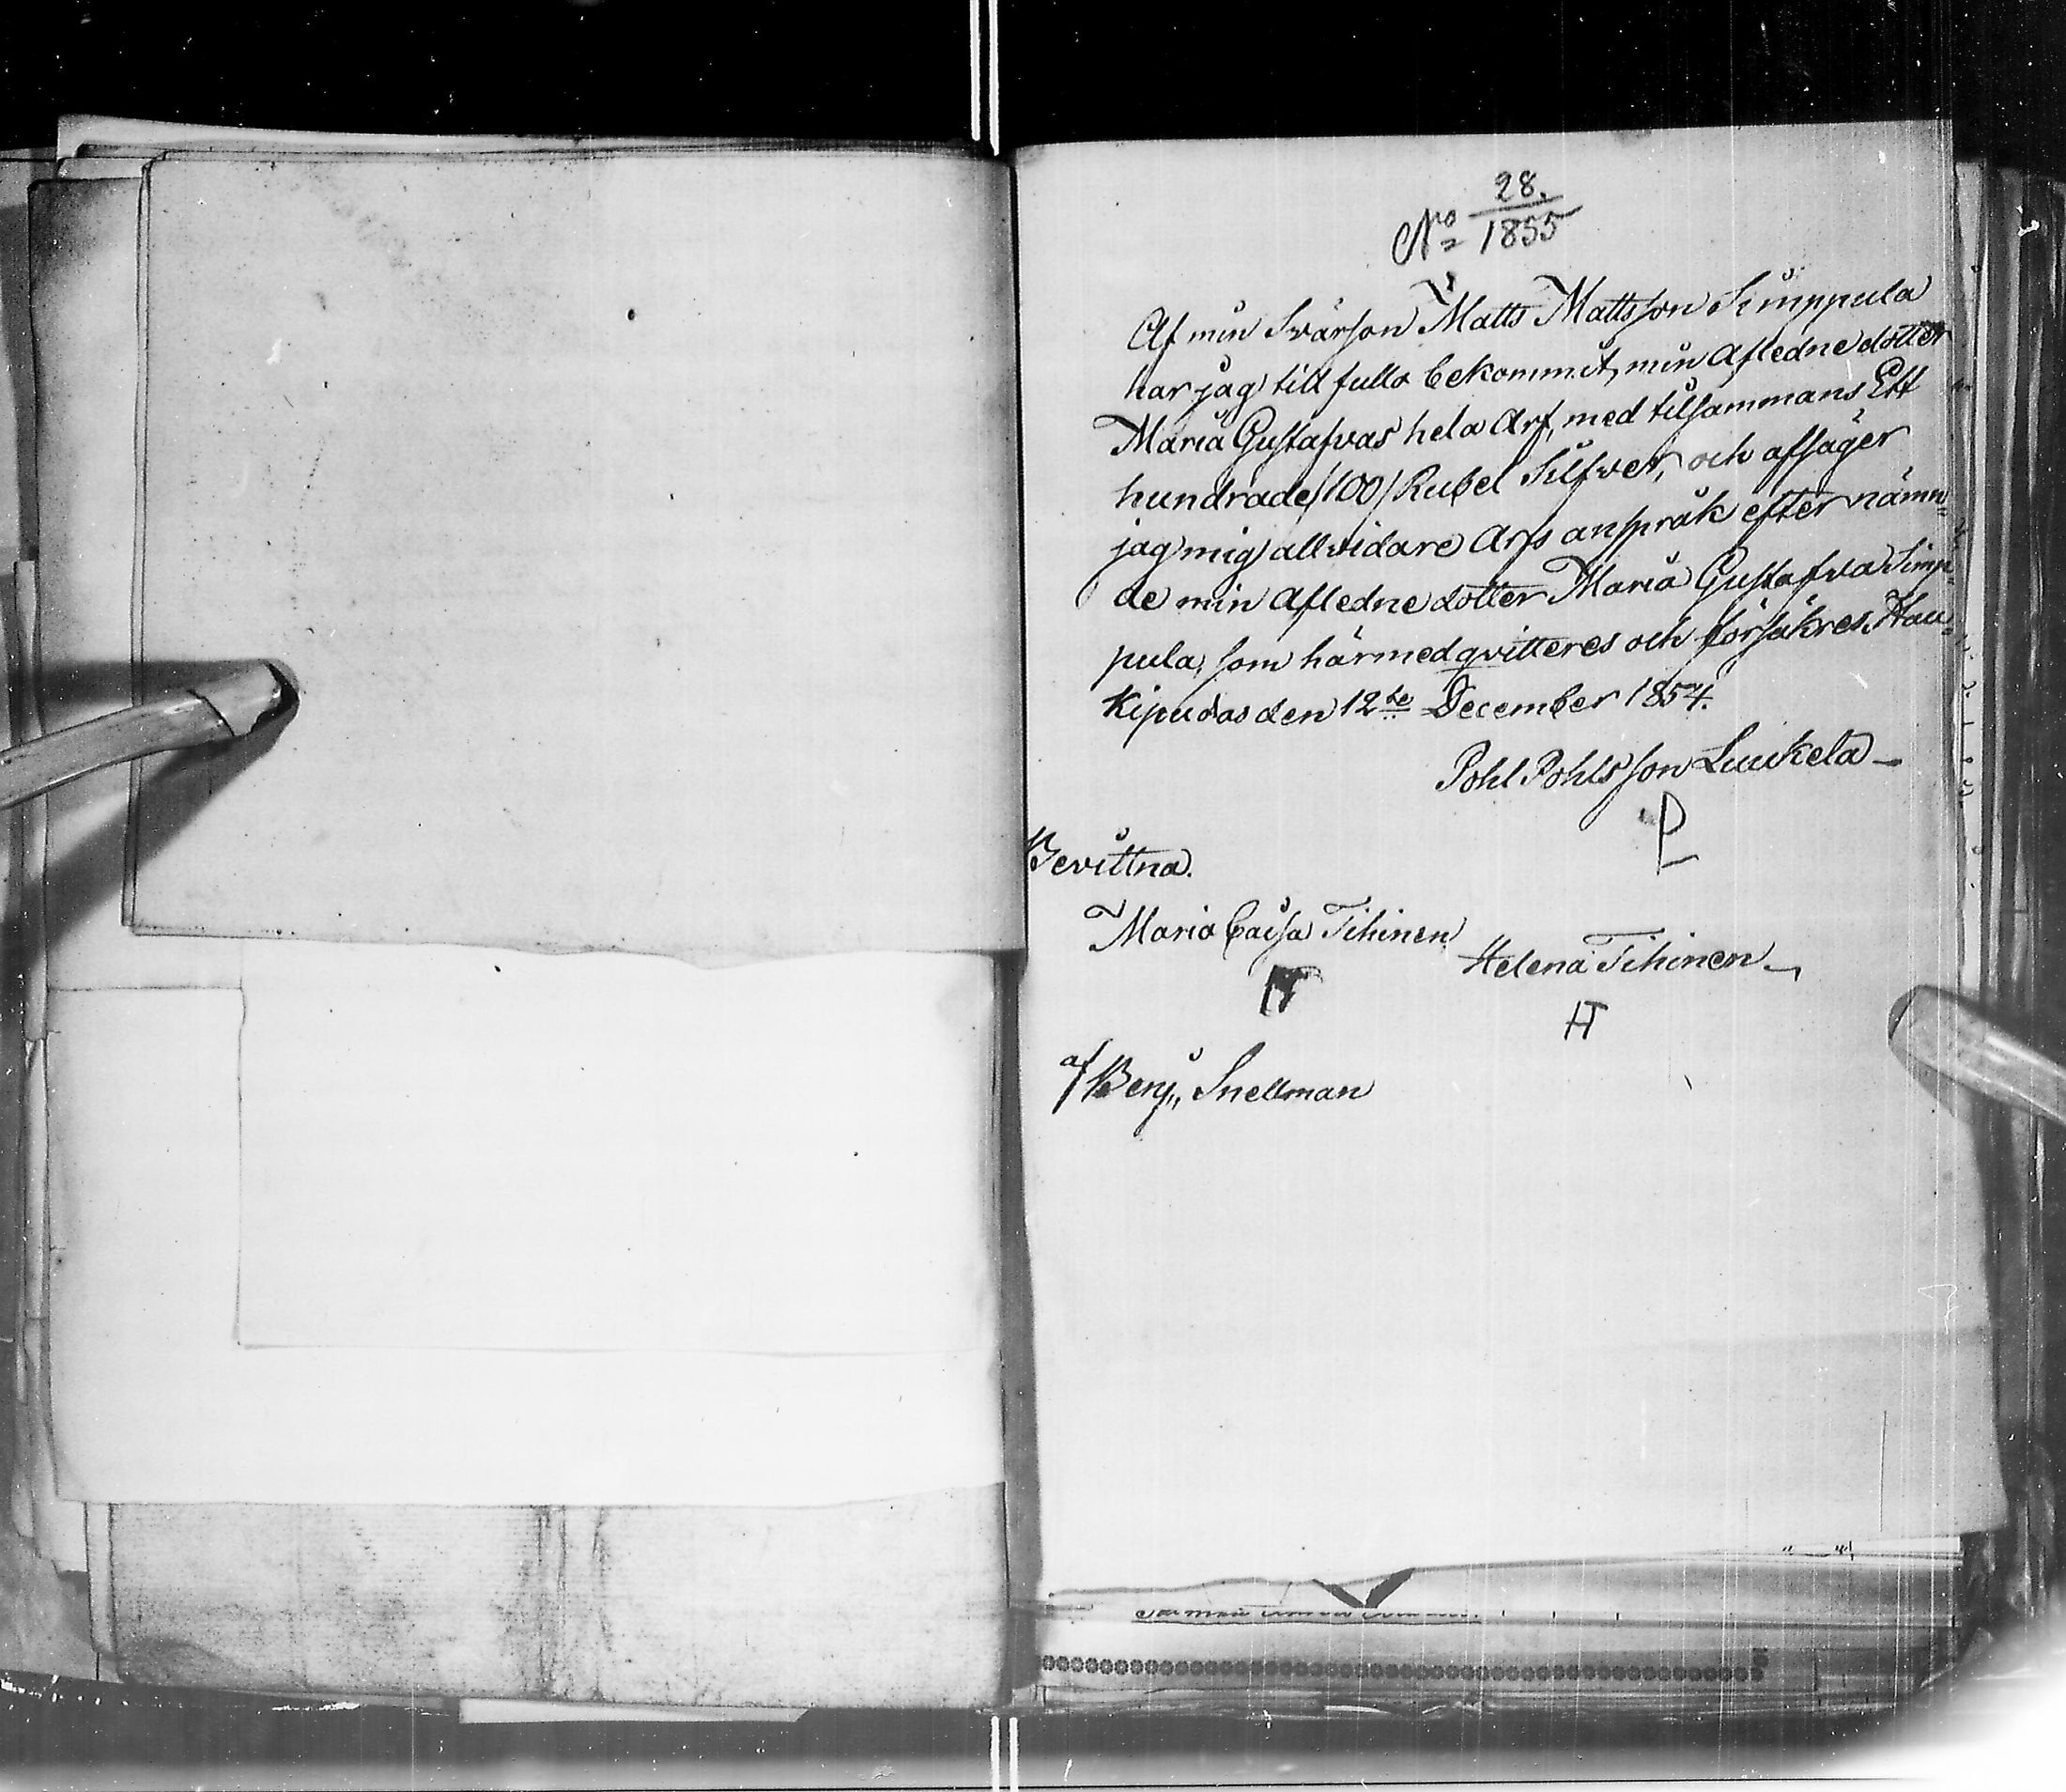 28.
No 1855
Af min Svärson Matts Mattsson Simppula
har jag till fullo bekommit, min Afledne dotter
Maria Gustafvas hela Arf, med tilsammans Ett
hundrade /100/ Rubel Silfver, och afsäger
jag mig all vidare Arfs anspråk efter nämn=
de min Afledne dotter Maria Gustafva Simp=
pula, som härmed qvitteres och försäkres, Hau=
kipudas den 12te December 1854.
Pohl Pohlsson Luukela
P
Bevittna.
Maria Caisa Tihinen
Helena Tihinen
HT
af Benj,, Snellman